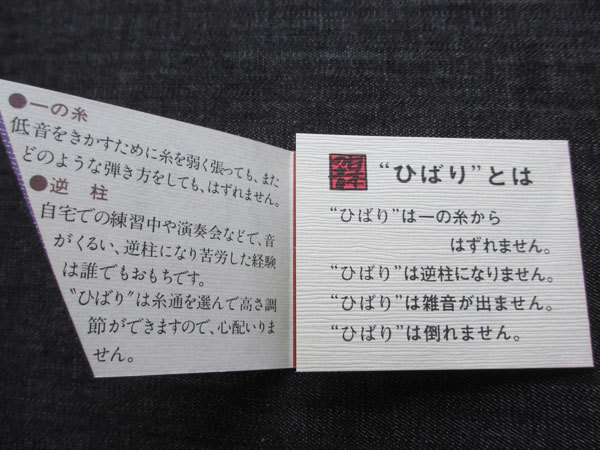 ●一の糸
低音をきかすために糸を弱く張っても、また
どのような弾き方をしても、はずれません。
●逆 柱
自宅での練習中や演奏会などで、音
がくるい、逆柱になり苦労した経験
は誰でもおもちです。
〝ひばり〟は糸通を選んで高さ調
節ができますので、心配いりま
せん。
“ひばり”とは
“ひばり”は一の糸から
はずれません。
“ひばり”は逆柱になりません。
“ひばり”は雑音が出ません。
“ひばり”は倒れません。